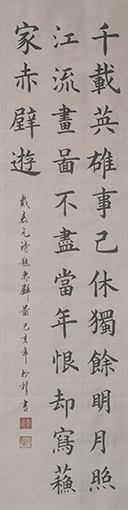 千載英雄事已休獨餘明月照
江流畫啚不盡當年恨却寫蘇
家赤壁遊
戴表元詩題赤壁啚己亥年